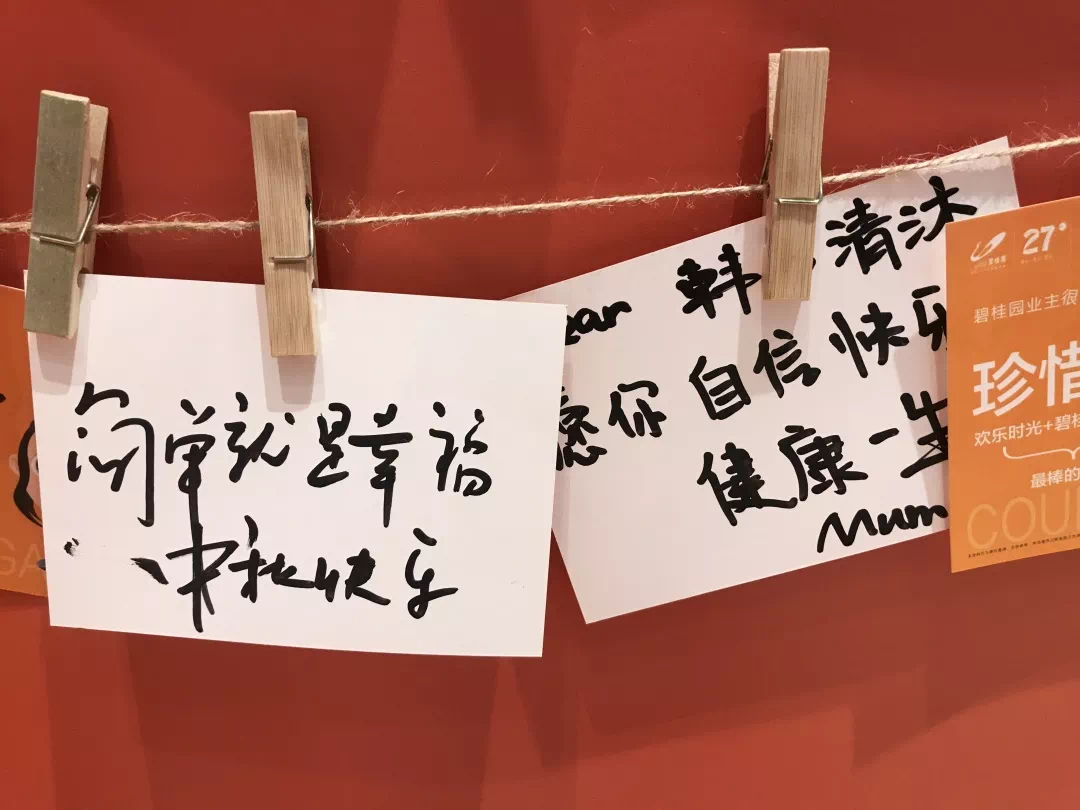 简单就是幸福
中秋快乐
ear 韩 清沐
愿你 自信 快乐
健康 一生
Mum
27°
碧桂园业主很
珍惜
欢乐时光+碧桂
最棒的
COU
GA